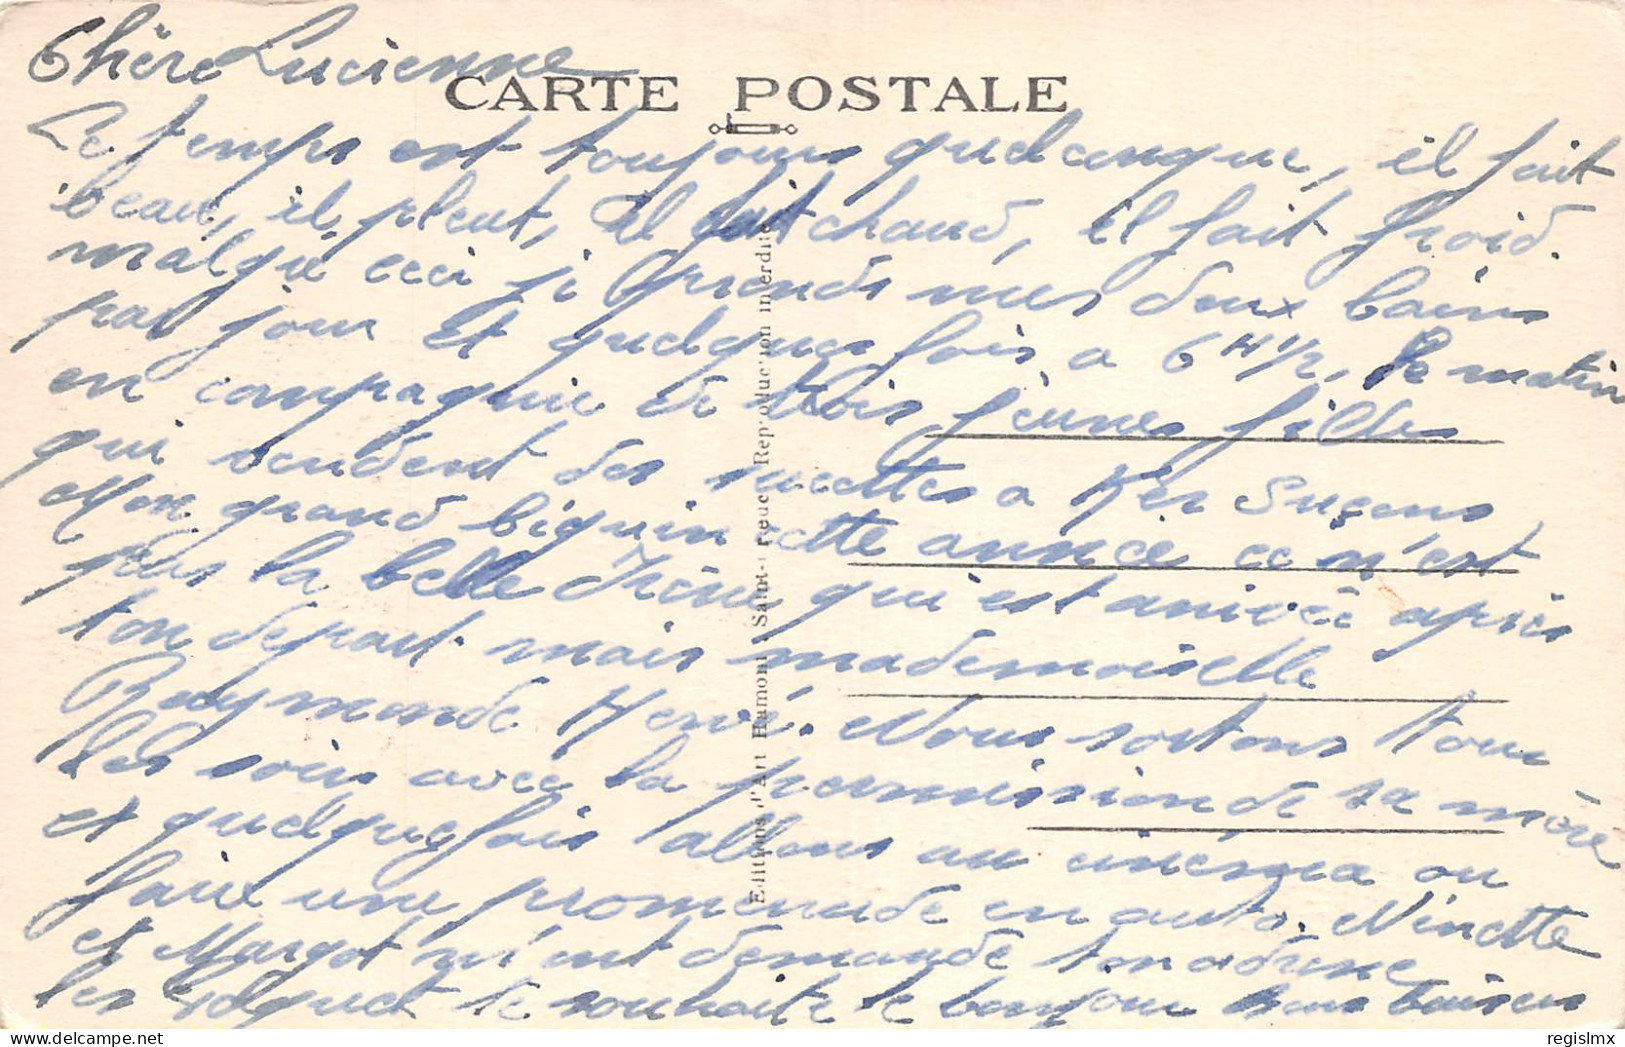 Chère Lucienne
CARTE POSTALE
Le temps est toujours quelconque, il fait
beau, il pleut, il fait chaud, il fait froid.
malgré ceci je prends mes deux bains
par jour et quelques fois a 6 H 1/2, le matin
en compagnie de trois jeunes filles
qui vendent des sucettes a Ker Suçons
Mon grand béguin cette année ce n'est
pas la belle Irène qui est arrivée après
ton depart mais mademoiselle
Raymonde Hervé. Nous sortons tous
les soirs avec la permission de sa mère
et quelquefois allons au cinéma ou
faire une promenade en auto. Ninette
et Margot m'ont demandé ton adresse
les te souhaite le bonjour bons baisers
Editions d'Art Hamoni Saint- rieuc Reproduction interdite
regislmx
delcampe.net